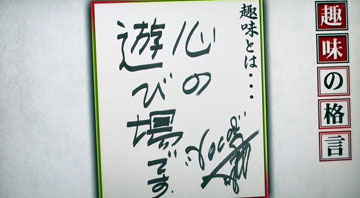 趣味の格言
趣味とは・・・
心の
遊び場です